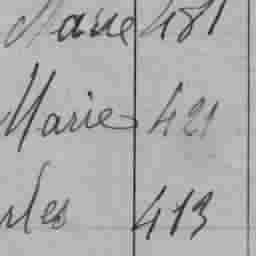 Marie 481
Marie 421
rles 413